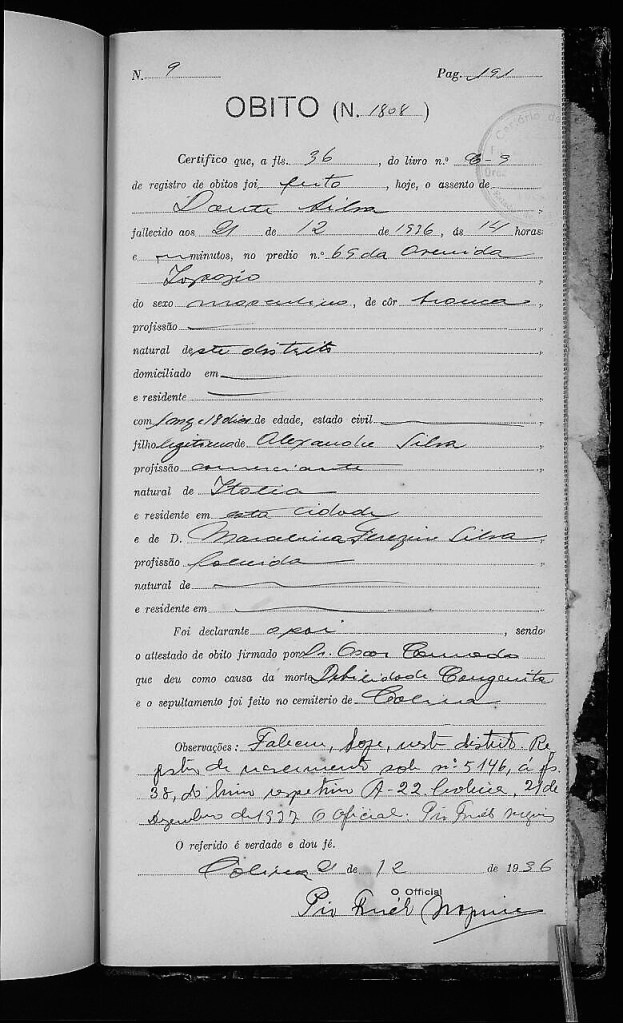 N. 9 Pag. 191
OBITO (N. 1808)
Certifico que, a fls. 36, do livro n.º C-9
de registro de obitos foi feito, hoje, o assento de
Dante Silva
fallecido aos 21 de 12 de 1936, ás 14 horas
e minutos, no predio n.º 69 da Avenida
do sexo masculino, de côr branca,
profissão
natural deste districto
domiciliado em
e residente
com 1 mez e 18 dias de edade, estado civil
filho legitimo de Alexandre Silva
profissão comerciante
natural de Italia
e residente em esta cidade
e de D. Silva,
profissão
natural de
e residente em
Foi declarante o pai, sendo
o attestado de obito firmado por Dr. Oscar
que deu como causa da morte Debilidade Congenita
e o sepultamento foi feito no cemiterio de Colina.
Observações: Faleceu, hoje, neste distrito. Re
gistro de nascimento sob nº 5146, á fs.
38, do livro respetivo A-22. Colina, 21 de
Dezembro de 1937 O Oficial: Pio
O referido é verdade e dou fé.
Colina 21 de 12 de 1936
O Official
Pio